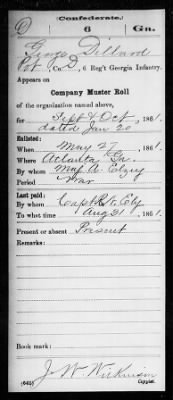 (Confederate.)
D 6 Ga.
George Dillard
Pvt, Co. D, 6 Reg't Georgia Infantry.
Appears on
Company Muster Roll
of the organization named above,
for Sept & Oct, 1861.
dated Jan 20
Enlisted:
When May 27, 1861.
Where Atlanta Ga.
By whom Maj. A.
Period War
Last paid:
By whom Capt R. W. Ely
To what time Aug 31, 1861.
Present or absent Present
Remarks:
Book mark:
J. W. Wilkinson
(642) Copyist.